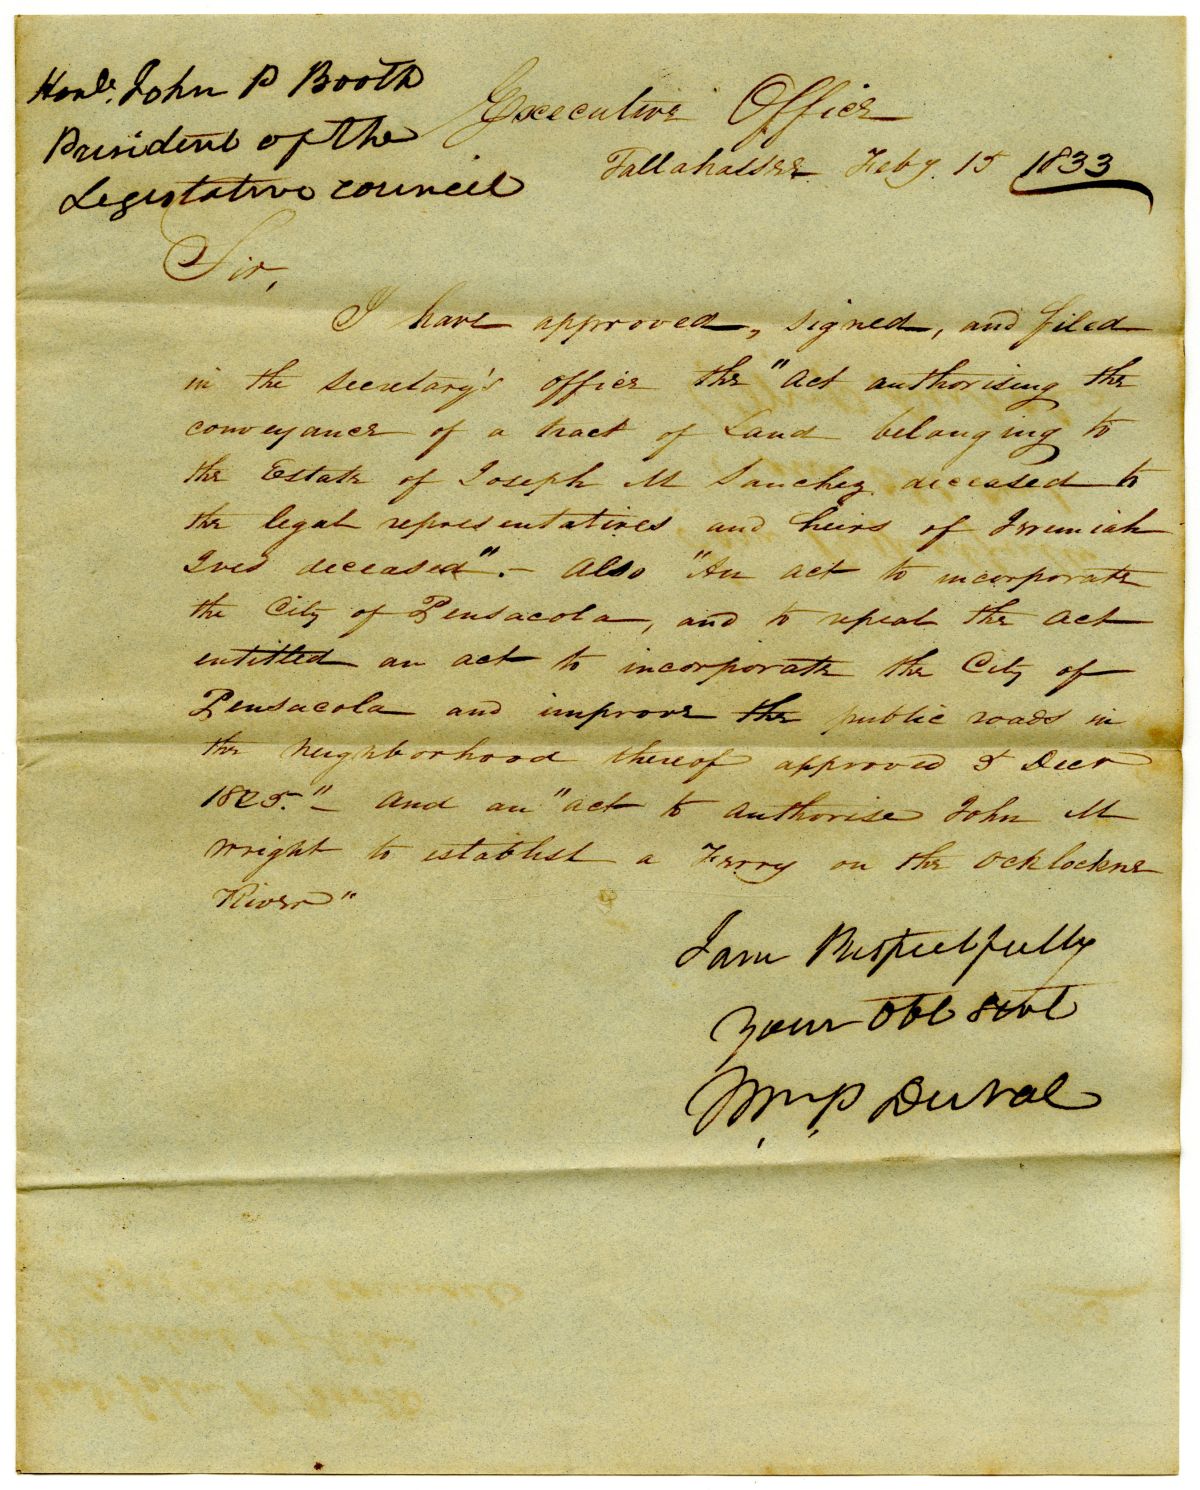 Honle. John P Booth
President of the
Legistative council
Executive Office
Tallahassee Feby. 15 1833
Sir,
I have approved, signed, and filed
in the secretary's office the "act authorising the
conveyance of a tract of Land belonging to
the Estate of Joseph M Sanchez deceased to
the legal representatives and heirs of Jeremiah
Ives deceased". - Also "An act to incorporate
the City of Pensacola, and to repeal the act
entitled an act to incorporate the City of
Pensacola and improve the public roads in
the neighborhood thereof approved 5 Decr
1825." - And an "act to authorise John M
Wright to establish a Ferry on the Ocklockne
River"
I am Respectfully
your Obt Sevt
Wm. P. DuVal